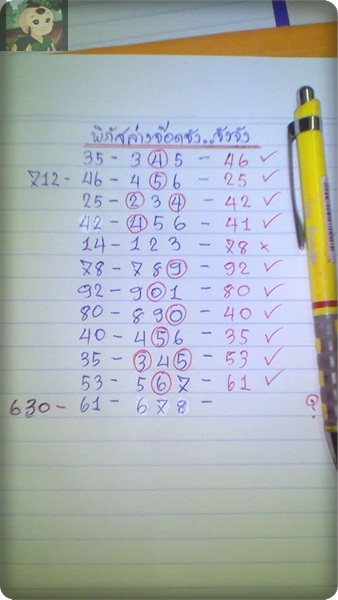 35 - 3 4 5 - 46 ✓
712 - 46 - 4 5 6 - 25 ✓
25 - 2 3 4 - 42 ✓
42 - 4 5 6 - 41 ✓
14 - 1 2 3 - 78 ×
78 - 7 8 9 - 92 ✓
92 - 9 0 1 - 80 ✓
80 - 8 9 0 - 40 ✓
40 - 4 5 6 - 35 ✓
35 - 3 4 5 - 53 ✓
53 - 5 6 7 - 61 ✓
630 - 61 - 6 7 8 - ?